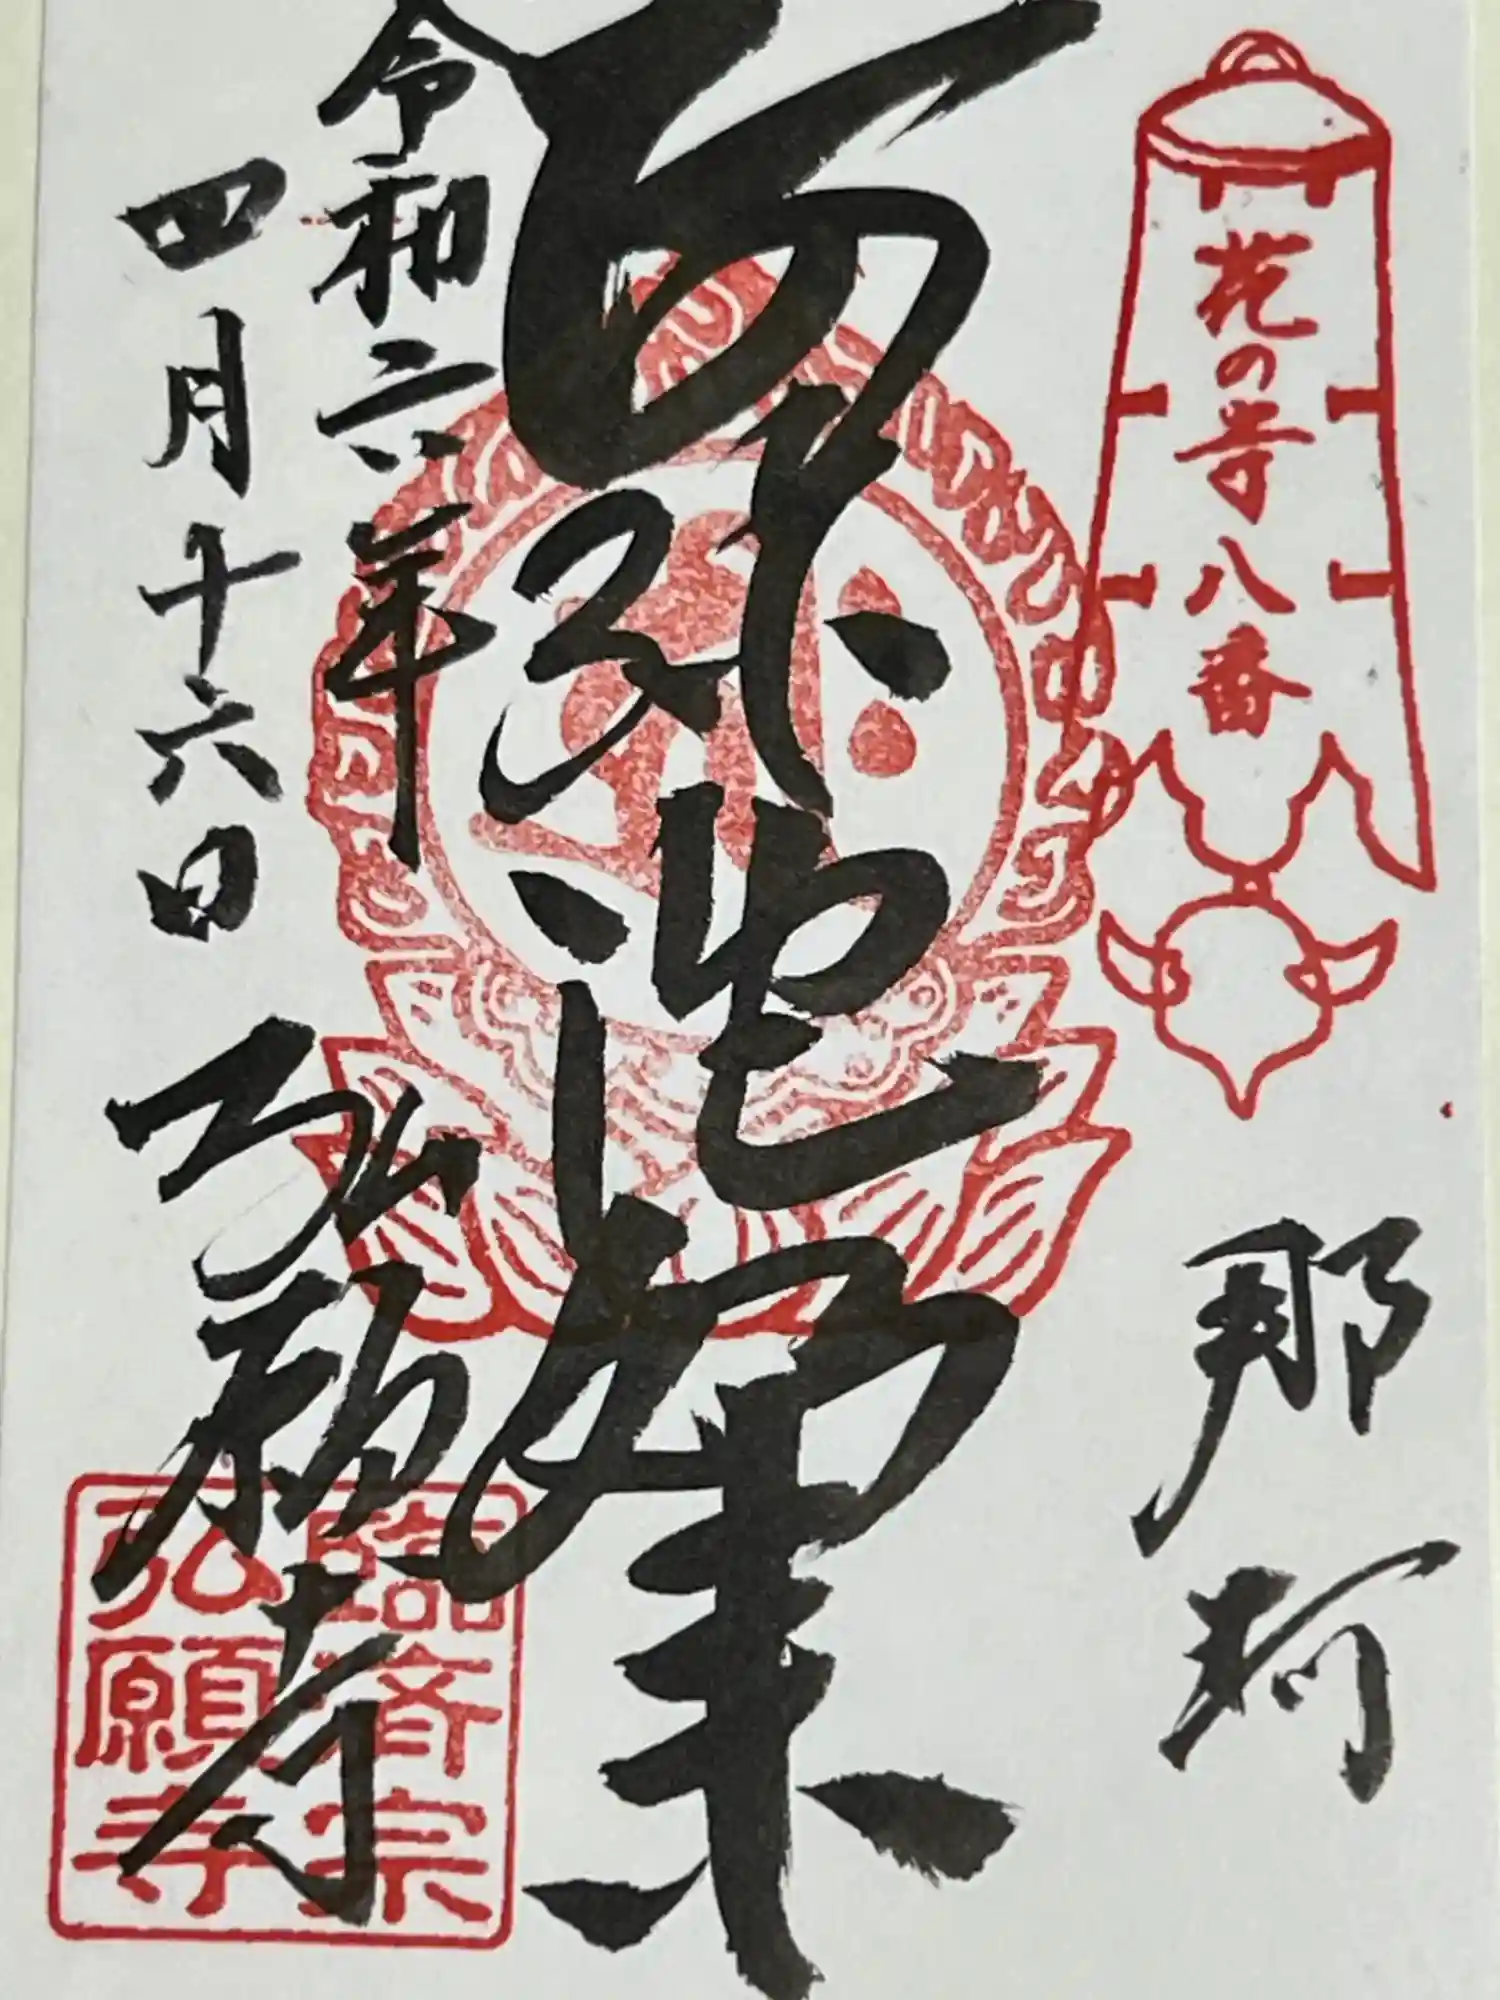 花の寺八番
那珂
阿弥陀如来
令和六年
四月十六日
弘願寺
臨済宗
弘願寺